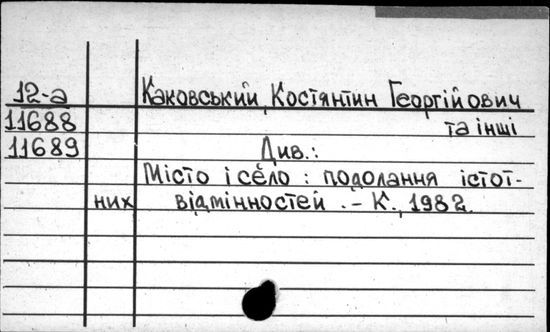 12-а Каковський, Костянтин Георгійович
11688 та інші
11689 Див.:
Місто і село: подолання істот-
них відмінностей. – К., 1982.